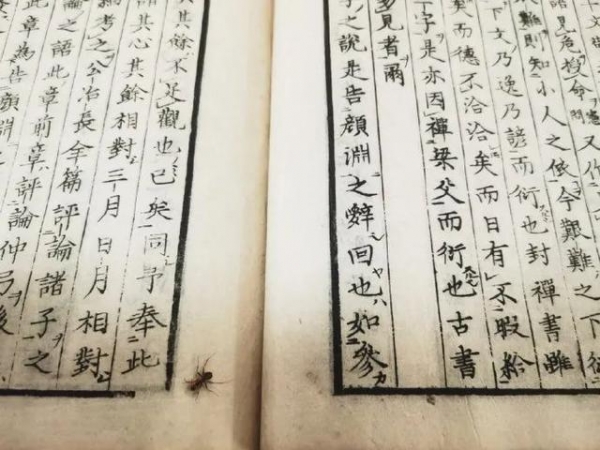 見危授命又作
難則知小人之依今艱難之下從
下文乃逸乃諺而衍也封禪書雖
矣而德不洽洽矣而日有不暇給
下字是亦因禪梁父而衍也古書
多見者爾
之說是告顏淵之辭回也如參
其餘不足觀也已矣同予奉此
其心其餘相對三月日月相對
考之公冶長全篇評論諸子之
論之語此章前章評論仲弓後
此章為告顏淵